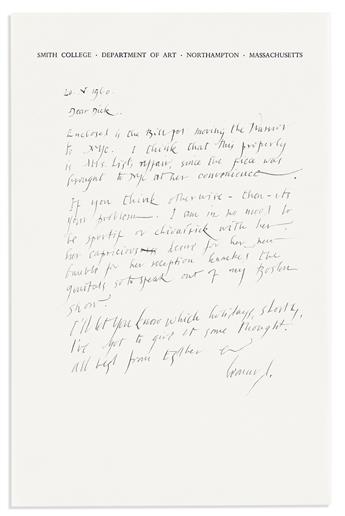 SMITH COLLEGE · DEPARTMENT OF ART · NORTHAMPTON · MASSACHUSETTS
1960.
Dear Dick.
Enclosed is the Bill for moving the Warrior
to NYC. I think that this properly
is Mrs. List's affair, since the piece was
brought to NYC at her convenience.
If you think otherwise - then - its
your problem. I am in no mood to
be sportif or chivalrick with her.
her capricious desire for her new
bauble for her reception knocks the
genitals so to speak out of my Boston
show.
I'll let you know which holidays, shortly,
I've got to give it some thought.
all best from Esther &
Leonard.